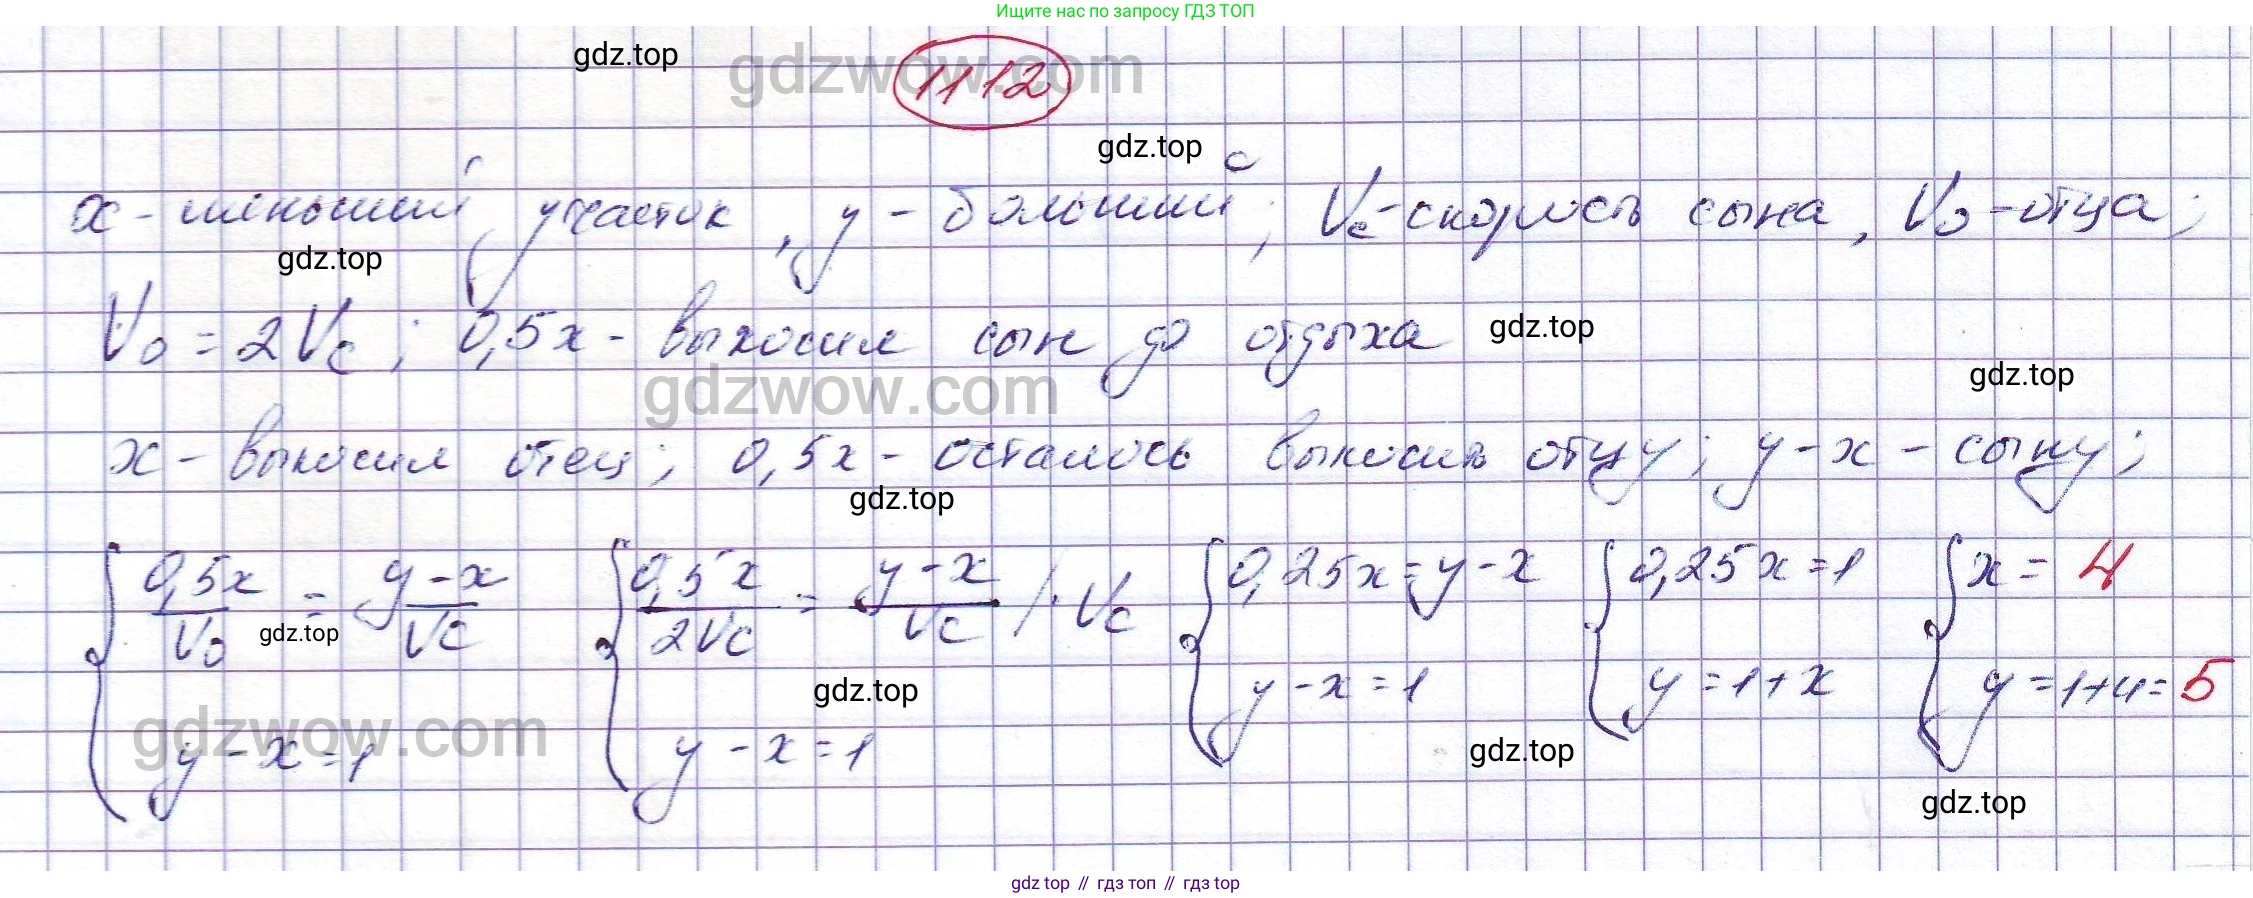 Ищите нас по запросу ГДЗ ТОП
gdz.top
gdzwow.com
1112
gdz.top
x - меньший участок, y - больший; Vс - скорость сына, Vо - отца;
gdz.top
Vо = 2Vс; 0,5x - выкосил сын до отдыха
gdz.top
gdz.top
gdzwow.com
x - выкосил отец; 0,5x - осталось выкосить отцу; y - x - сыну;
gdz.top
{ 0,5x/Vо = y-x/Vс { 0,5x/2Vс = y-x/Vс /·Vс { 0,25x = y-x { 0,25x = 1 { x = 4
gdz.top
y - x = 1 y - x = 1 y - x = 1 y = 1+x y = 1+4 = 5
gdz.top
gdzwow.com
gdz.top
gdz.top
gdz top // гдз топ // гдз top